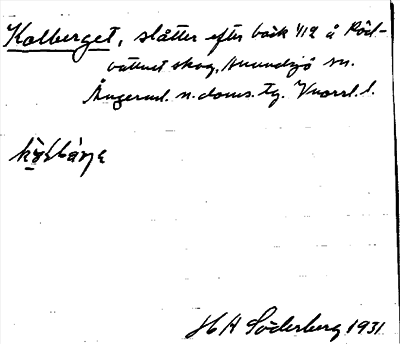 Kolberget, slåtter efter bäck 4/12 å Röd-
vattnet skog, Anundsjö sn.
Ångerml. n. doms. tg. Vnorrl. l.
H A Söderberg 1931